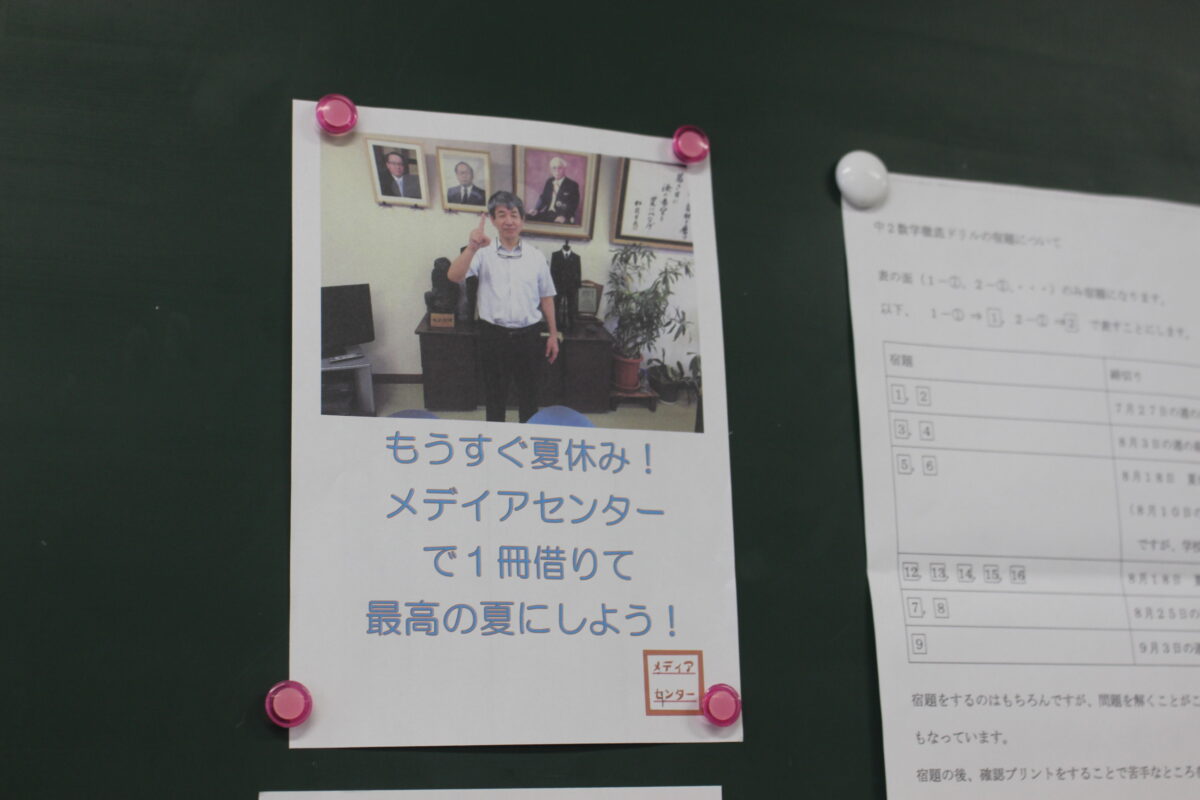 もうすぐ夏休み！
メディアセンター
で１冊借りて
最高の夏にしよう！
メディア
センター
中２数学徹底ドリルの宿題について
表の面（１－①、２－①、・・・）のみ宿題になります。
以下、１－① ⇒ 1, ２－① ⇒ 2 で表すことにします。
宿題 締切り
1, 2 ７月２７日の週の
3, 4 ８月３日の週の
5, 6 ８月１８日
（８月１０日の
ですが、学校
12, 13, 14, 15, 16 ８月１８日
7, 8 ８月２５日の
9 ９月３日の週
宿題をするのはもちろんですが、問題を解くことが
もなっています。
宿題の後、確認プリントをすることで苦手なところを